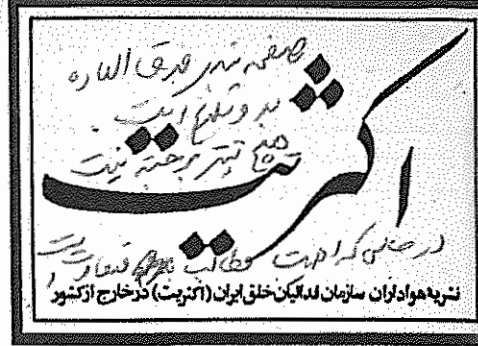 صفحه بندی فوق العاده
بد و شلوغ است.
هیچ تیتر برجسته نیست
اکثریت
در حالی که اهمیت مطالب متفاوت است
نشریه هواداران سازمان فدائیان خلق ایران (اکثریت) در خارج از کشور